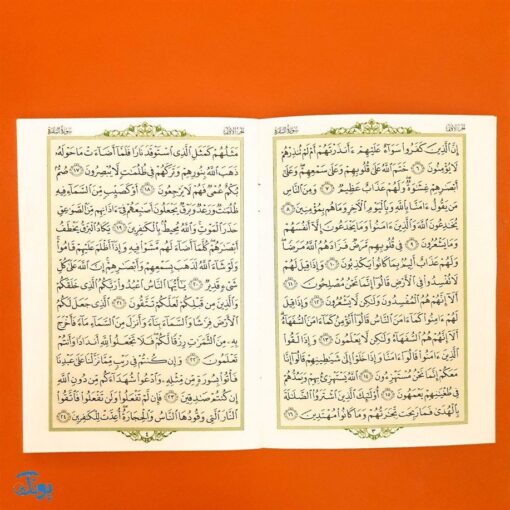 الجزء الاول
سورة البقرة
إِنَّ الَّذِينَ كَفَرُوا سَوَاءٌ عَلَيْهِمْ ءَأَنذَرْتَهُمْ أَمْ لَمْ تُنذِرْهُمْ
لَا يُؤْمِنُونَ ﴿٦﴾ خَتَمَ اللَّهُ عَلَى قُلُوبِهِمْ وَعَلَى سَمْعِهِمْ وَعَلَى
أَبْصَارِهِمْ غِشَاوَةٌ وَلَهُمْ عَذَابٌ عَظِيمٌ ﴿٧﴾ وَمِنَ النَّاسِ
مَن يَقُولُ ءَامَنَّا بِاللَّهِ وَبِالْيَوْمِ الْآخِرِ وَمَا هُم بِمُؤْمِنِينَ ﴿٨﴾
يُخَادِعُونَ اللَّهَ وَالَّذِينَ ءَامَنُوا وَمَا يَخْدَعُونَ إِلَّا أَنفُسَهُمْ
وَمَا يَشْعُرُونَ ﴿٩﴾ فِي قُلُوبِهِم مَّرَضٌ فَزَادَهُمُ اللَّهُ مَرَضًا
وَلَهُمْ عَذَابٌ أَلِيمٌ بِمَا كَانُوا يَكْذِبُونَ ﴿١٠﴾ وَإِذَا قِيلَ لَهُمْ
لَا تُفْسِدُوا فِي الْأَرْضِ قَالُوا إِنَّمَا نَحْنُ مُصْلِحُونَ ﴿١١﴾
أَلَا إِنَّهُمْ هُمُ الْمُفْسِدُونَ وَلَكِن لَّا يَشْعُرُونَ ﴿١٢﴾ وَإِذَا قِيلَ
لَهُمْ ءَامِنُوا كَمَا ءَامَنَ النَّاسُ قَالُوا أَنُؤْمِنُ كَمَا ءَامَنَ السُّفَهَاءُ
أَلَا إِنَّهُمْ هُمُ السُّفَهَاءُ وَلَكِن لَّا يَعْلَمُونَ ﴿١٣﴾ وَإِذَا لَقُوا
الَّذِينَ ءَامَنُوا قَالُوا ءَامَنَّا وَإِذَا خَلَوْا إِلَى شَيَاطِينِهِمْ قَالُوا إِنَّا
مَعَكُمْ إِنَّمَا نَحْنُ مُسْتَهْزِءُونَ ﴿١٤﴾ اللَّهُ يَسْتَهْزِئُ بِهِمْ وَيَمُدُّهُمْ
فِي طُغْيَانِهِمْ يَعْمَهُونَ ﴿١٥﴾ أُولَئِكَ الَّذِينَ اشْتَرَوُا الضَّلَالَةَ
بِالْهُدَى فَمَا رَبِحَت تِّجَارَتُهُمْ وَمَا كَانُوا مُهْتَدِينَ ﴿١٦﴾
٣
الجزء الاول
سورة البقرة
مَثَلُهُمْ كَمَثَلِ الَّذِي اسْتَوْقَدَ نَارًا فَلَمَّا أَضَاءَتْ مَا حَوْلَهُ
ذَهَبَ اللَّهُ بِنُورِهِمْ وَتَرَكَهُمْ فِي ظُلُمَاتٍ لَّا يُبْصِرُونَ ﴿١٧﴾ صُمٌّ
بُكْمٌ عُمْيٌ فَهُمْ لَا يَرْجِعُونَ ﴿١٨﴾ أَوْ كَصَيِّبٍ مِّنَ السَّمَاءِ فِيهِ
ظُلُمَاتٌ وَرَعْدٌ وَبَرْقٌ يَجْعَلُونَ أَصَابِعَهُمْ فِي ءَاذَانِهِم مِّنَ الصَّوَاعِقِ
حَذَرَ الْمَوْتِ وَاللَّهُ مُحِيطٌ بِالْكَافِرِينَ ﴿١٩﴾ يَكَادُ الْبَرْقُ يَخْطَفُ
أَبْصَارَهُمْ كُلَّمَا أَضَاءَ لَهُم مَّشَوْا فِيهِ وَإِذَا أَظْلَمَ عَلَيْهِمْ قَامُوا
وَلَوْ شَاءَ اللَّهُ لَذَهَبَ بِسَمْعِهِمْ وَأَبْصَارِهِمْ إِنَّ اللَّهَ عَلَى كُلِّ
شَيْءٍ قَدِيرٌ ﴿٢٠﴾ يَا أَيُّهَا النَّاسُ اعْبُدُوا رَبَّكُمُ الَّذِي خَلَقَكُمْ
وَالَّذِينَ مِن قَبْلِكُمْ لَعَلَّكُمْ تَتَّقُونَ ﴿٢١﴾ الَّذِي جَعَلَ لَكُمُ
الْأَرْضَ فِرَاشًا وَالسَّمَاءَ بِنَاءً وَأَنزَلَ مِنَ السَّمَاءِ مَاءً فَأَخْرَجَ
بِهِ مِنَ الثَّمَرَاتِ رِزْقًا لَّكُمْ فَلَا تَجْعَلُوا لِلَّهِ أَندَادًا وَأَنتُمْ
تَعْلَمُونَ ﴿٢٢﴾ وَإِن كُنتُمْ فِي رَيْبٍ مِّمَّا نَزَّلْنَا عَلَى عَبْدِنَا
فَأْتُوا بِسُورَةٍ مِّن مِّثْلِهِ وَادْعُوا شُهَدَاءَكُم مِّن دُونِ اللَّهِ
إِن كُنتُمْ صَادِقِينَ ﴿٢٣﴾ فَإِن لَّمْ تَفْعَلُوا وَلَن تَفْعَلُوا فَاتَّقُوا
النَّارَ الَّتِي وَقُودُهَا النَّاسُ وَالْحِجَارَةُ أُعِدَّتْ لِلْكَافِرِينَ ﴿٢٤﴾
٤
پونک